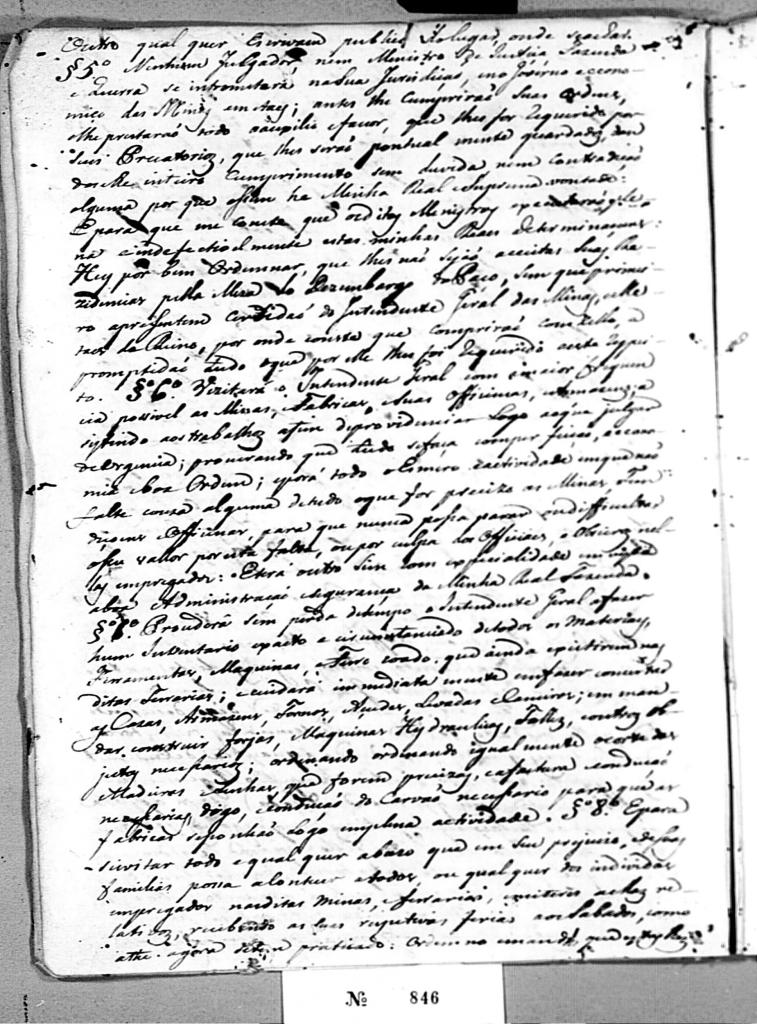 Outro qual quer Escrivam publico do lugar, onde
§5º Nenhum Julgador, nem Ministro de Justiça Fazenda
e Guerra se intrometerá na Sua Jurisdiçaõ, e no econo-
mico das Minas antes lhe Cumpriraõ Suas Ordens,
e lhe prestaraõ todo oauxilio e favor, que lhes for Requerido por
Seus Precatorios, que lhes seraõ pontual mente guardados, dan
dose lhe inteiro Cumprimento sem duvida nem Contradiçaõ
alguma por que assim he Minha Real e Suprema vontade:
E para que me conste que os ditos Ministros
na e indefectivel mente estas minhas Reaes Determinaçoens:
Hey por bem Ordennar, que lhes naõ sejaõ aceitas Suas Re-
zidencias pella Meza do Dezembargo do Paço, Sem que primei-
ro aprezentem Certidaõ do Intendente Geral das Minas, e Me-
taes do Reino, por onde conste que Compriraõ com toda a
promptidaõ tudo o que por elle lhes foi Requerido neste Respei-
to. §º6º Vizitará o Intendente Geral com amaior frequen
cia possivel as Minas, Fabricas, e Suas Officinas, e Armazens, a
sistindo aos trabalhos afim deprovidenciar Logo aoque julgar
deUrgencia; procurando que tudo sefaça com perfeiçaõ, e econo
mia e boa Ordem; e porá todo o Esmero e actividade emque naõ
falte couza alguma detudo oque for precizo as Minas Fun
diçoens e Officinas, para que nunca possa parar ou difficultar
o seu valor por esta falta, ou por culpa dos Officiaes, e Obreiros nel-
las empregados: e Terá outro Sim com especialidade em
aboa Administraçaõ e segurança da Minha Real Fazenda.
§º7º Procederá Sem perda detempo o Intendente Geral afazer
hum Inventario exacto e circunstanciado detodos os Materiaes,
Ferramentas, Maquinas, e Ferro coado, que ainda existirem nas
ditas Ferrarias; e cuidará immediata mente em fazer concertar
as Cazas, Armazens, Fornos, Açudes, Levadas e Caminhos; em man-
dar construir forjas, Maquinas Hydraulicas, Folles, e outros ob-
jectos necessarios; ordinando ordinando igualmente o corte das
Madeiras e Lenhas, que forem precizas, e afactura e conduçaõ
necessarias, digo, e conduçaõ do Carvaõ necessario para que as
fabricas se ponhaõ Logo em plena actividade. §º8º E para
se evitar todo e qual quer abuzo que em Seu prejuizo, e de Suas
Familias possa a Contecer atodos, ou qual quer dos individuos
empregados nas ditas Minas, e ferrarias, e
lativos, recebendo as Suas respectivas ferias aos Sabados, como
athe agora se tem praticado: Ordenno e mando, que
Nº 846